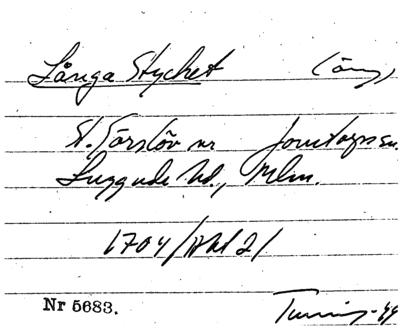 Långa Stycket (äng)
St. Görslöv nr Jonstorps sn.
Luggude hd., Mlm.
1704/Akt 2/
Nr 5683.